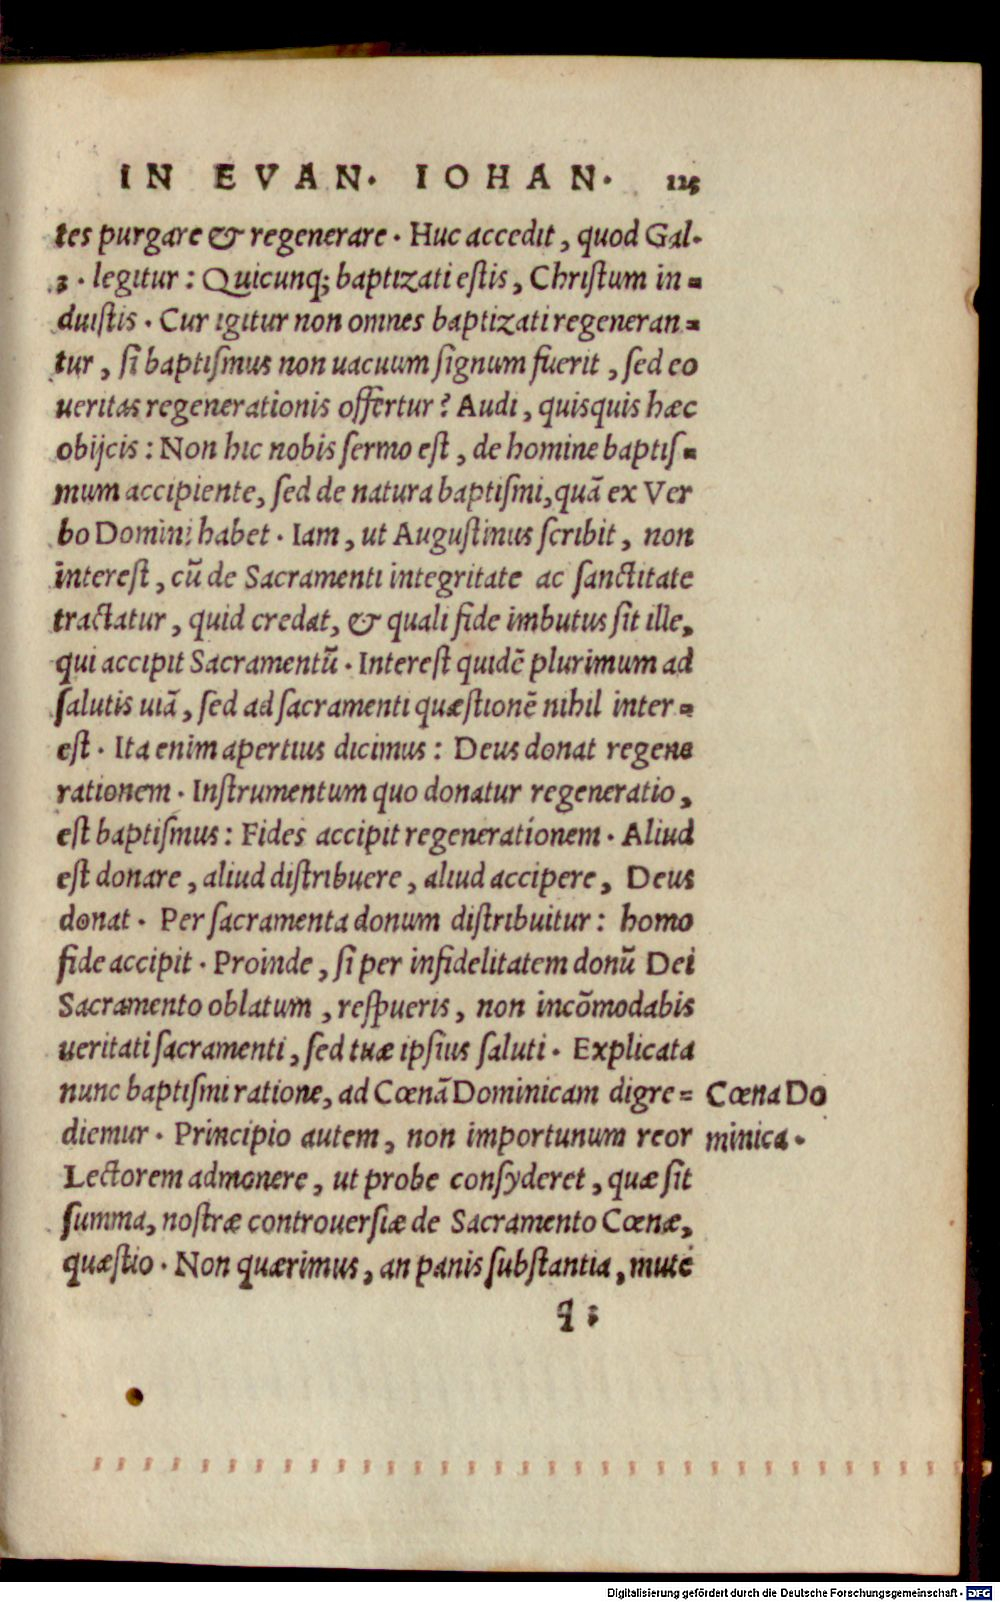 IN EVAN. IOHAN. 125
tes purgare & regenerare. Huc accedit, quod Gal.
3. legitur: Quicunq; baptizati estis, Christum in=
duistis. Cur igitur non omnes baptizati regeneran=
tur, si baptismus non uacuum signum fuerit, sed eo
ueritas regenerationis offertur? Audi, quisquis hæc
obijcis: Non hic nobis sermo est, de homine baptis=
mum accipiente, sed de natura baptismi, quã ex Ver
bo Domini habet. Iam, ut Augustinus scribit, non
interest, cũ de Sacramenti integritate ac sanctitate
tractatur, quid credat, & quali fide imbutus sit ille,
qui accipit Sacramentũ. Interest quidẽ plurimum ad
salutis uiã, sed ad sacramenti quæstionẽ nihil inter=
est. Ita enim apertius dicimus: Deus donat regene
rationem. Instrumentum quo donatur regeneratio,
est baptismus: Fides accipit regenerationem. Aliud
est donare, aliud distribuere, aliud accipere, Deus
donat. Per sacramenta donum distribuitur: homo
fide accipit. Proinde, si per infidelitatem donũ Dei
Sacramento oblatum, respueris, non incõmodabis
ueritati sacramenti, sed tuæ ipsius saluti. Explicata
nunc baptismi ratione, ad Cœnã Dominicam digre=
diemur. Principio autem, non importunum reor
Lectorem admonere, ut probe consyderet, quæ sit
summa, nostræ controuersiæ de Sacramento Cœnæ,
quæstio. Non quærimus, an panis substantia, mute
q
Cœna Do
minica.
Digitalisierung gefördert durch die Deutsche Forschungsgemeinschaft - DFG